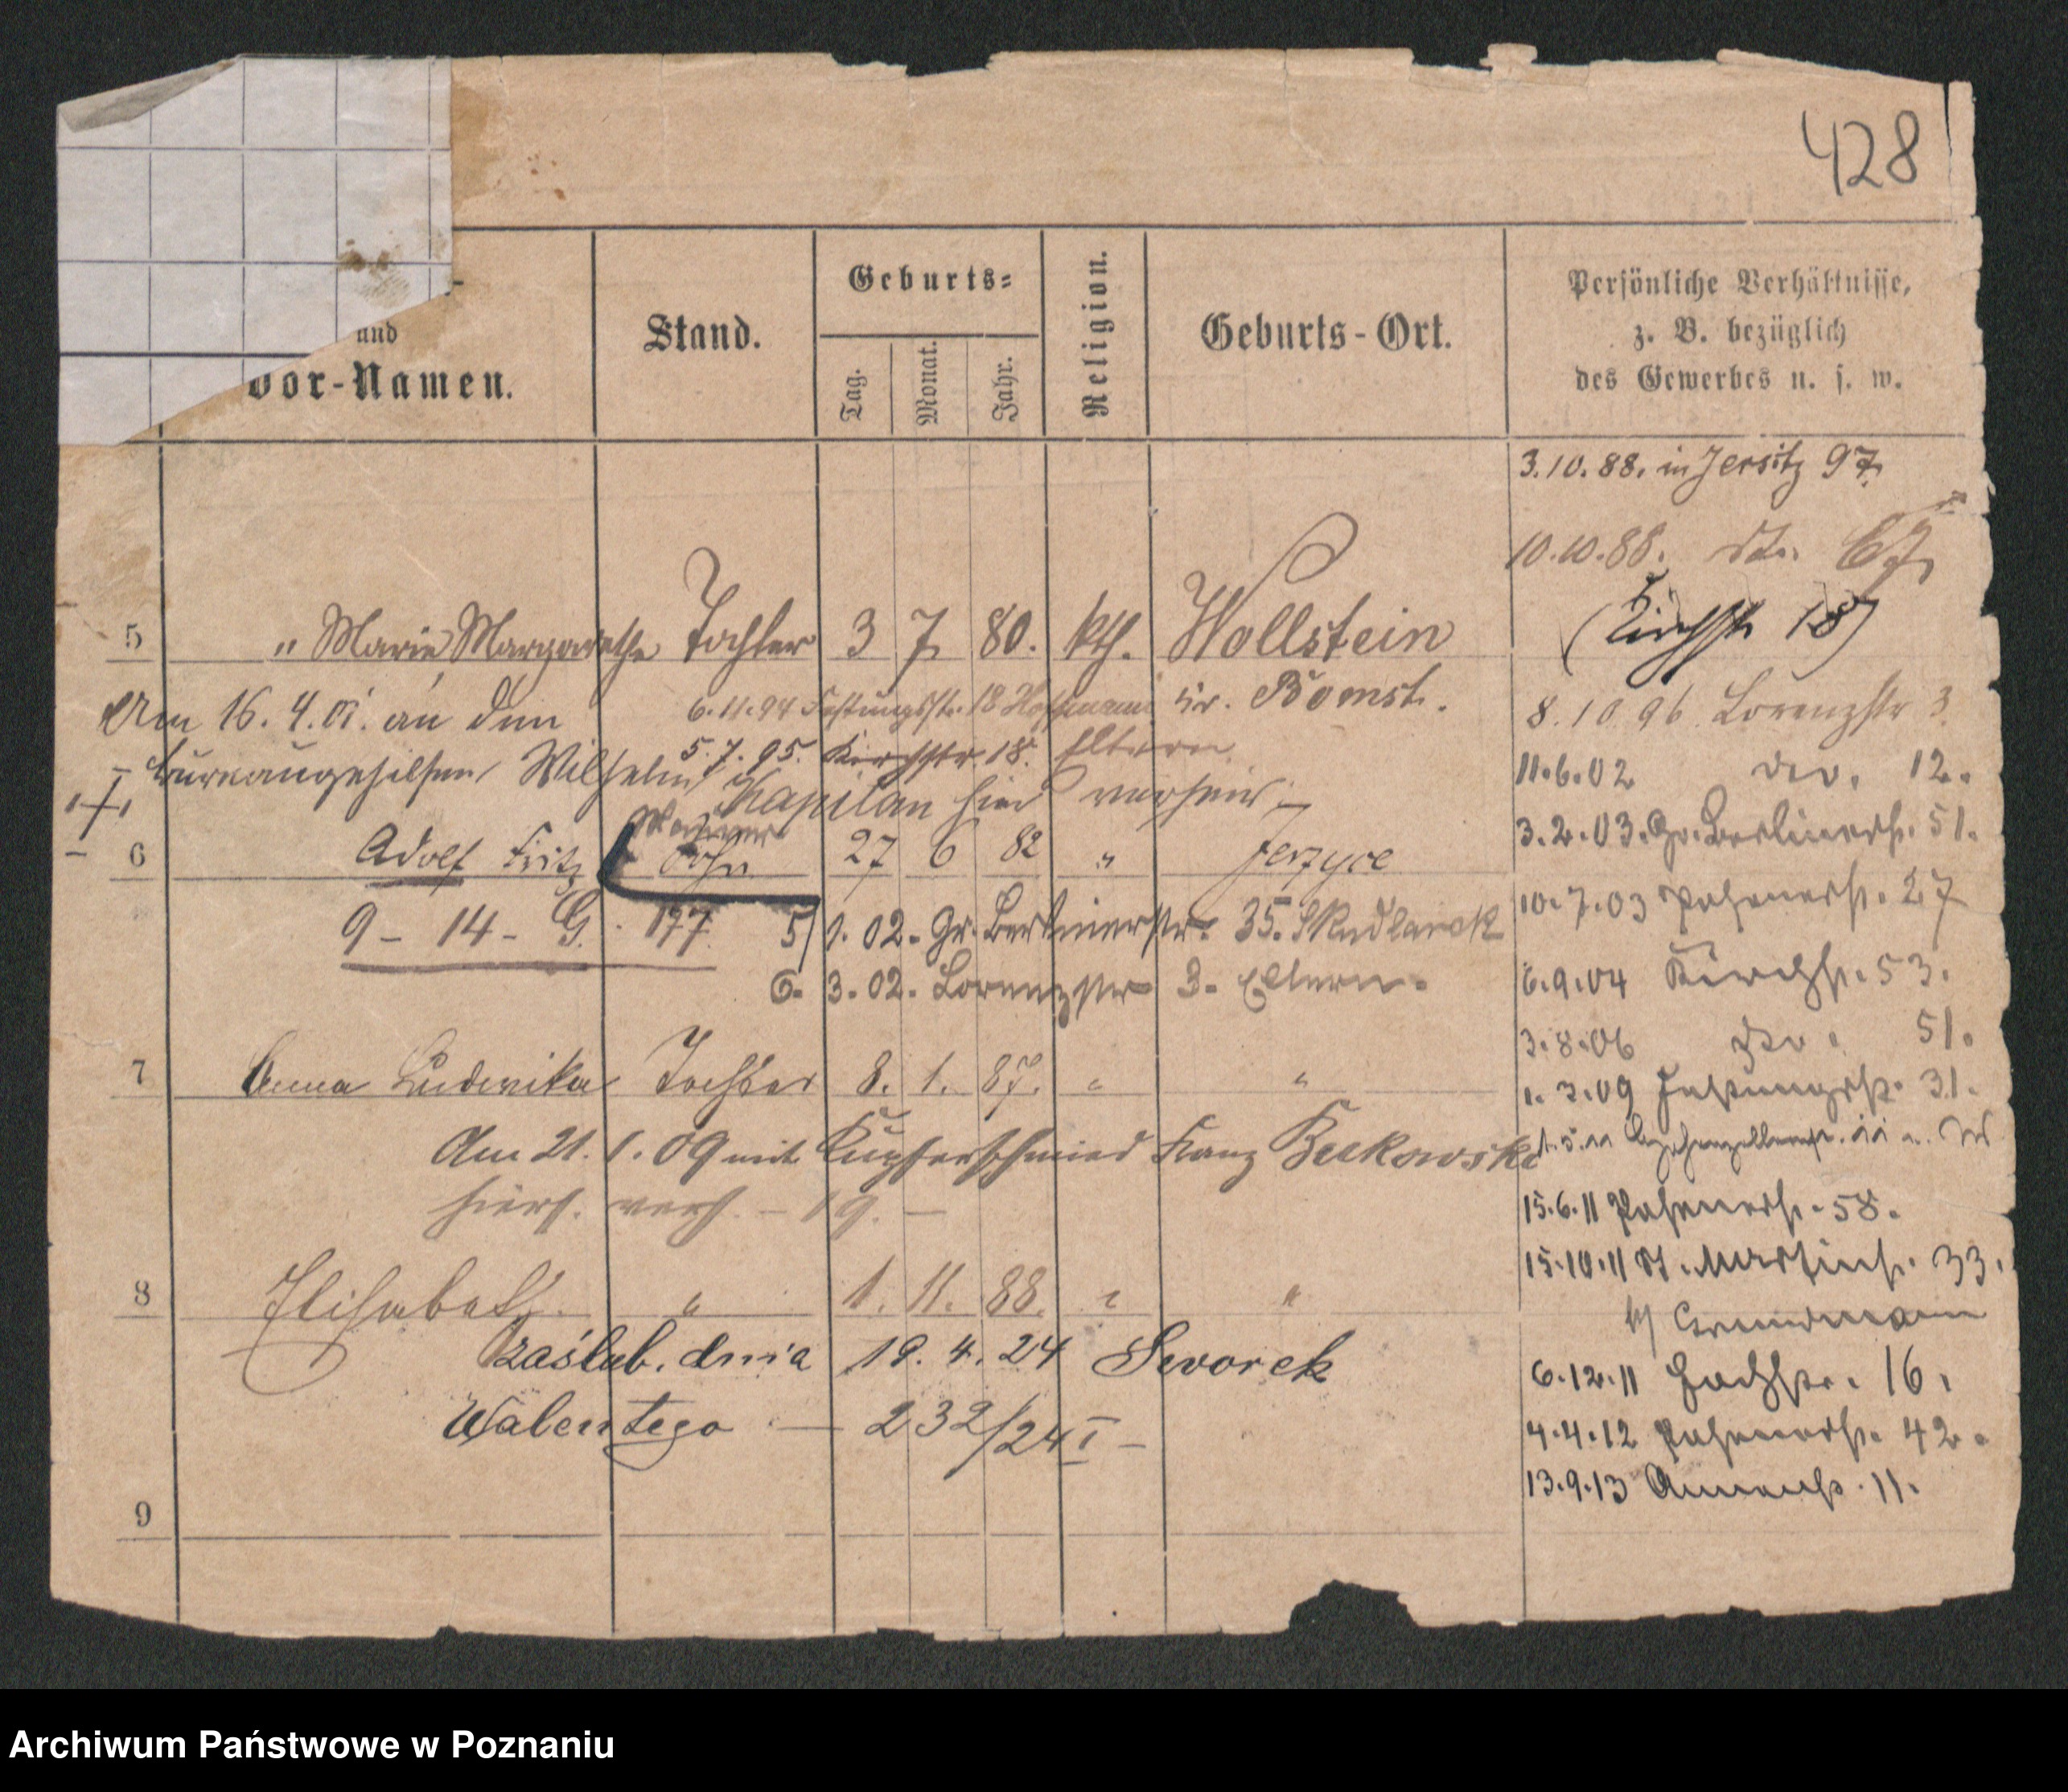 428
und
Vor-Namen.
Stand.
Geburts-
Tag.
Monat.
Jahr.
Religion.
Geburts-Ort.
Persönliche Verhältnisse,
z. B. bezüglich
des Gewerbes u. s. w.
3.10.88. in Jersitz 97.
10.10.88. dto. 67.
5 " Marie Margarethe Tochter 3 7 80. kth. Wollstein
(Kirchstr 18)
Am 16.4.01. an den
6.11.94 Festungsstr. 18 Hoffmann
Kr. Bomst.
8.10.96. Lorenzstr 3.
Bureaugehilfen Wilhelm
5.7.95. Kirchstr. 18. Eltern
11.6.02 dto. 12.
Kapitan hier verheir.
3.2.03. Gr. Berlinerstr. 51.
6 Adolf Fritz Sohn 27 6 82 " Jerzyce
10.7.03 Posenerstr. 27
9 - 14 - G. 177.
5/1.02. Gr. Berlinerstr. 35. Skudlarek
6.3.02. Lorenzstr 3. Eltern.
6.9.04 Kirchstr. 53.
3.8.06 dto. 51.
7 Anna Ludwika Tochter 8. 1. 87. " "
1.3.09 Festungsstr. 31.
Am 21.1.09 mit Kupferschmied Franz
hiers. verh. - 19. -
15.6.11 Posenerstr. 58.
15.10.11 St. Martinstr. 33.
8 Elisabeth. " 1. 11. 88. " "
b/ Grundmann
zaślub. dnia 19.4.24 Sworek
6.12.11 Hochstr. 16.
Walentego - 232/24 I -
4.4.12 Posenerstr. 42.
13.9.13 11.
9
Archiwum Państwowe w Poznaniu